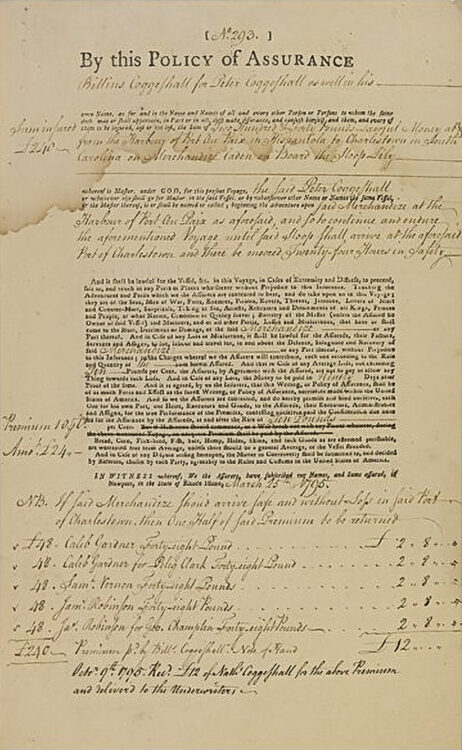 [ No. 293. ]
By this POLICY of ASSURANCE
Billins Coggeshall for Peter Coggeshall as well in his
own Name, as for and in the Name and Names of all and every other Person or Persons to whom the same
doth, may or shall appertain, in Part or in all, doth make Assurance, and causeth himself, and them, and every of
Sum insured
£240
them to be insured, lost or not lost, the Sum of Two Hundred & Forty Pounds Lawful Money at &
from the Harbour of Port Au Paix in Hispaniola to Charlestown in South
Carolina on Merchandize Laden on Board the Sloop Lily
whereof is Master, under GOD, for this present Voyage, the said Peter Coggeshall
or whosoever else shall go for Master in the said Vessel, or by whatsoever other Name or Names the same Vessel,
or the Master thereof, is or shall be named or called; beginning the Adventure upon said Merchandize at the
Harbour of Port Au Paix as aforesaid, and so to continue and endure
the aforementioned Voyage until said Sloop shall arrive at the aforesaid
Port of Charlestown and there be moored Twenty-four Hours in Safety
And it shall be lawful for the Vessel, &c. in this Voyage, in Cases of Extremity and Distress, to proceed,
sail to, and touch at any Ports or Places whatsoever without Prejudice to this Insurance. Touching the
Adventures and Perils which we the Assurers are contented to bear, and do take upon us in this Voyage;
they are of the Seas, Men of War, Fires, Enemies, Pirates, Rovers, Thieves, Jettisons, Letters of Mart
and Counter-Mart, Surprisals, Taking at Sea, Arrests, Restraints and Detainments of all Kings, Princes
and People, of what Nation, Condition or Quality soever; Barratry of the Master (unless the Assured be
Owner of said Vessel) and Mariners, and of all other Perils, Losses and Misfortunes, that have or shall
come to the Hurt, Detriment or Damage, of the said Merchandize or any
Part thereof. And in Case of any Loss or Misfortune, it shall be lawful for the Assured, their Factors,
Servants and Assigns, to sue, labour and travel for, in and about the Defence, Safeguard and Recovery of
said Merchandize or any Part thereof, without Prejudice
to this Insurance; to the Charges whereof we the Assurers will contribute, each one according to the Rate
and Quantity of the sum herein assured. And that in Case of any Average Loss, not exceeding
Ten Pounds per Cent. the Assurers, by Agreement with the Assured, are not to pay or allow any
Thing towards such Loss. And in Case of any Loss, the Money to be paid in Ninety Days after
Proof of the same. And it is agreed, by us the Insurers, that this Writing, or Policy of Assurance, shall be
of as much Force and Effect as the surest Writing, or Policy of Assurance, heretofore made within the United
States of America. And so we the Assurers are contented, and do hereby promise and bind ourselves, each
One for his own Part, our Heirs, Executors and Goods, to the Assureds, their Executors, Administrators
and Assigns, for the true Performance of the Premises, confessing ourselves paid the Consideration due unto
Premium 10 p Ct
Amot. £24
us for the Assurance by the Assured, at and after the Rate of Ten Pounds
per Cent.
Bread, Corn, Flax-seed, Fish, Salt, Hemp, Hides, Skins, and such Goods as are esteemed perishable,
are warranted from Average, unless there should be a general Average, or the Vessel stranded.
And in Case of any Dispute arising hereupon, the Matter in Controversy shall be submitted to, and decided
by Referees, chosen by each Party, agreeably to the Rules and Customs in the United States of America.
IN WITNESS whereof, We the Assurers, have subscribed our Names, and Sums assured, in
Newport, in the State of Rhode Island, March 25th 1795.
NB. If said Merchandize should arrive safe and without Loss in said Port
of Charlestown, then One Half of said Premium to be returned
£48 - Caleb Gardner Forty eight Pound £ 2 .. 8 ..
48 . Caleb Gardner for Peleg Clark Forty eight Pound 2 .. 8 ..
48 . Saml. Vernon Forty eight Pounds 2 .. 8 ..
48 . Jam. Robinson Forty eight Pounds 2 .. 8 ..
48 . Jas. Robinson for Geo. Champlin Forty eight Pounds 2 .. 8 ..
£240 Premium pd. by Bills. Coggeshalls. Note of Hand £12
Octor. 9th. 1795. Recd. £12 of Nathl. Coggeshall for the above Premium
and deliverd to the Underwriters